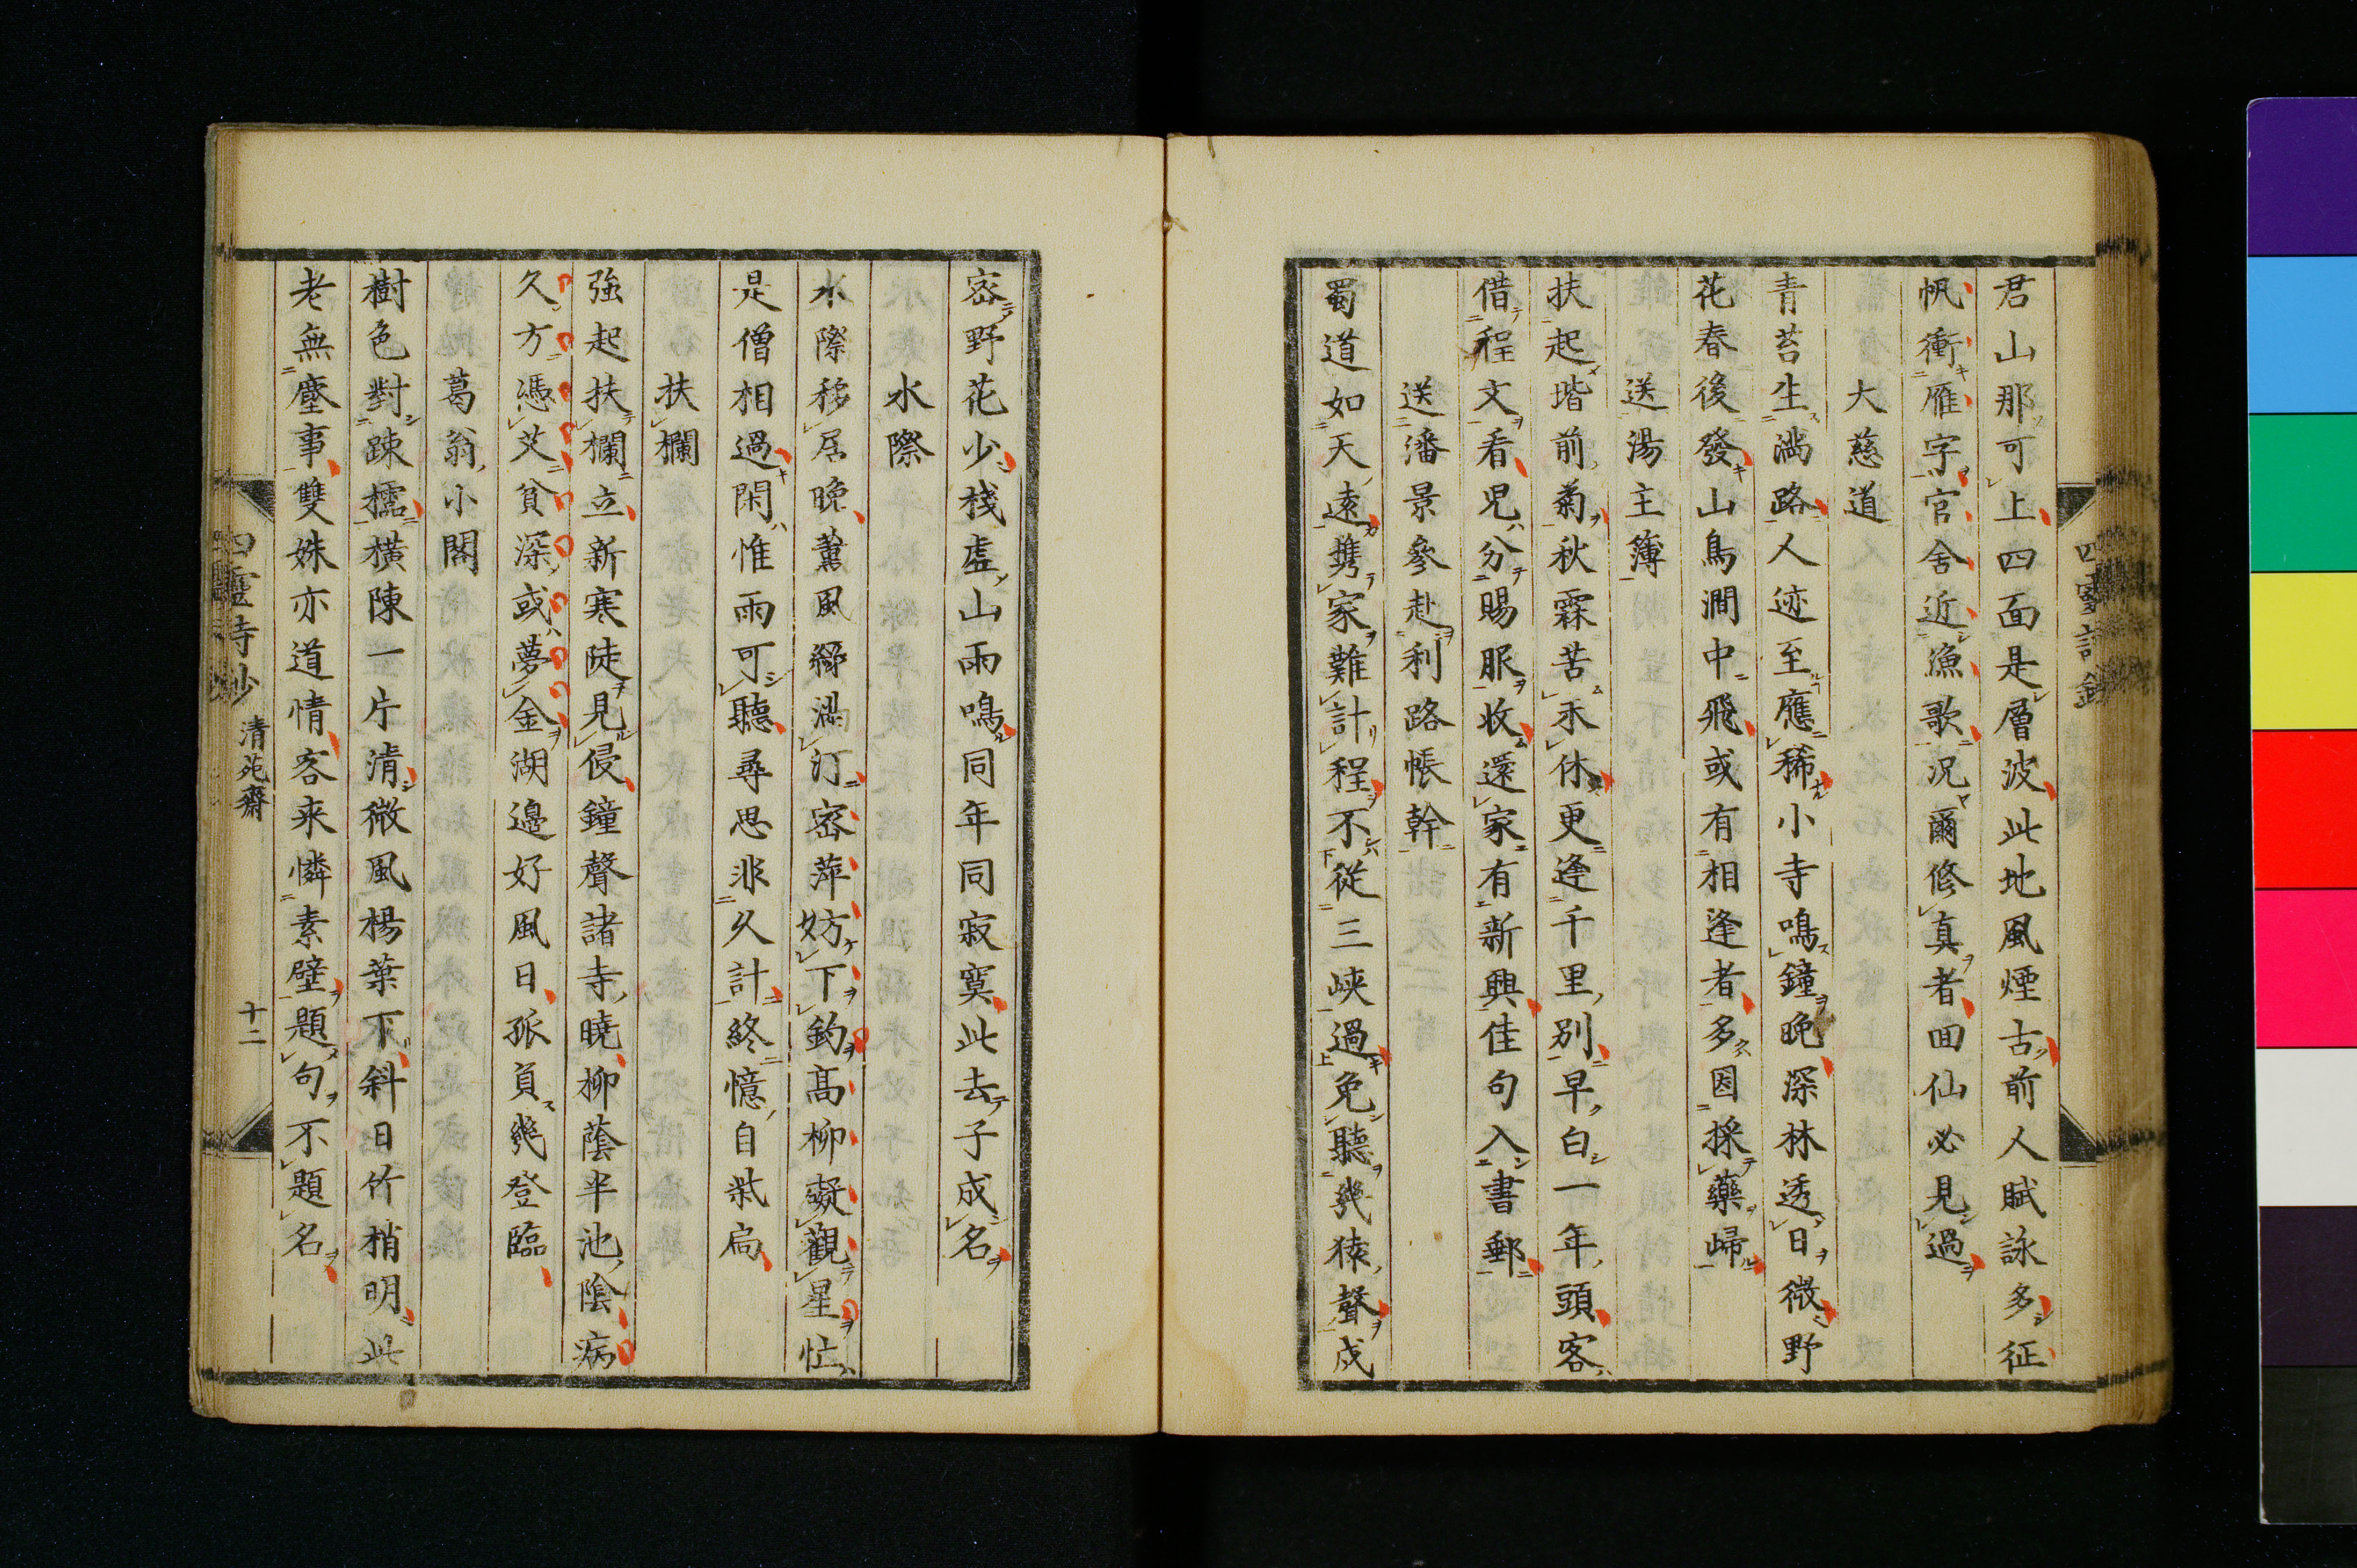 君山那可上四面是層波此地風煙古前人賦詠多征
帆衝雁字官舍近漁歌况爾修真者回仙必見過
大慈道
青苔生滿路人迹至應稀小寺鳴鐘晚深林透日微野
花春後發山鳥澗中飛或有相逢者多因採藥歸
送湯主簿
扶起堦前菊秋霖苦未休更逢千里別早白一年頭客
借程文看兒分賜服收還家有新興佳句入書郵
送潘景參赴利路帳幹
蜀道如天遠攜家難計程不從三峽過免聽幾猿聲戍
密野花少棧虛山雨鳴同年同寂寞此去子成名
水際
水際移居晚薰風綠滿汀密萍妨下釣高柳礙觀星忙
是僧相過閑惟雨可聽尋思非久計終憶自柴扃
扶欄
強起扶欄立新寒陡見侵鐘聲諸寺曉柳蔭半池陰病
久方憑艾貧深或夢金湖邊好風日孤負幾登臨
葛翁小閣
樹色對踈櫺橫陳一片清微風楊葉下斜日竹梢明此
老無塵事雙姝亦道情客来憐素壁題句不題名
四靈詩鈔
四靈詩鈔 清苑齋 十二